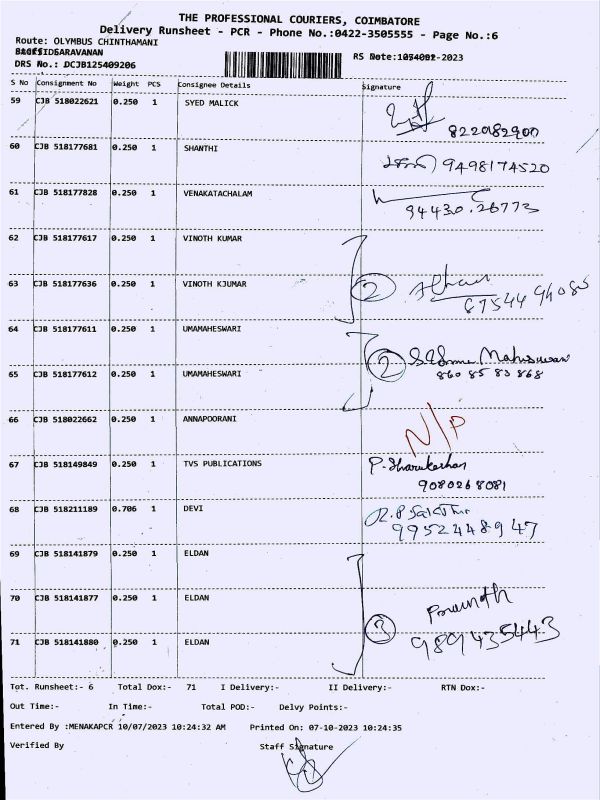 THE PROFESSIONAL COURIERS, COIMBATORE
Delivery Runsheet - PCR - Phone No.:0422-3505555 - Page No.:6
Route: OLYMBUS CHINTHAMANI
SARAVANAN
RS Note: -2023
DRS No.: DCJB125409206
S No Consignment No Weight PCS Consignee Details Signature
59 CJB 518022621 0.250 1 SYED MALICK
822082900
60 CJB 518177681 0.250 1 SHANTHI
9498174520
61 CJB 518177828 0.250 1 VENAKATACHALAM
94430.26773
62 CJB 518177617 0.250 1 VINOTH KUMAR
63 CJB 518177636 0.250 1 VINOTH KJUMAR
2
64 CJB 518177611 0.250 1 UMAMAHESWARI
2
65 CJB 518177612 0.250 1 UMAMAHESWARI
860 85 83 868
66 CJB 518022662 0.250 1 ANNAPOORANI
N/P
67 CJB 518149849 0.250 1 TVS PUBLICATIONS
9080268081
68 CJB 518211189 0.706 1 DEVI
9952448947
69 CJB 518141879 0.250 1 ELDAN
70 CJB 518141877 0.250 1 ELDAN
3
71 CJB 518141880 0.250 1 ELDAN
9891435443
Tot. Runsheet:- 6 Total Dox:- 71 I Delivery:- II Delivery:- RTN Dox:-
Out Time:- In Time:- Total POD:- Delvy Points:-
Entered By :MENAKAPCR 10/07/2023 10:24:32 AM Printed On: 07-10-2023 10:24:35
Verified By Staff Signature